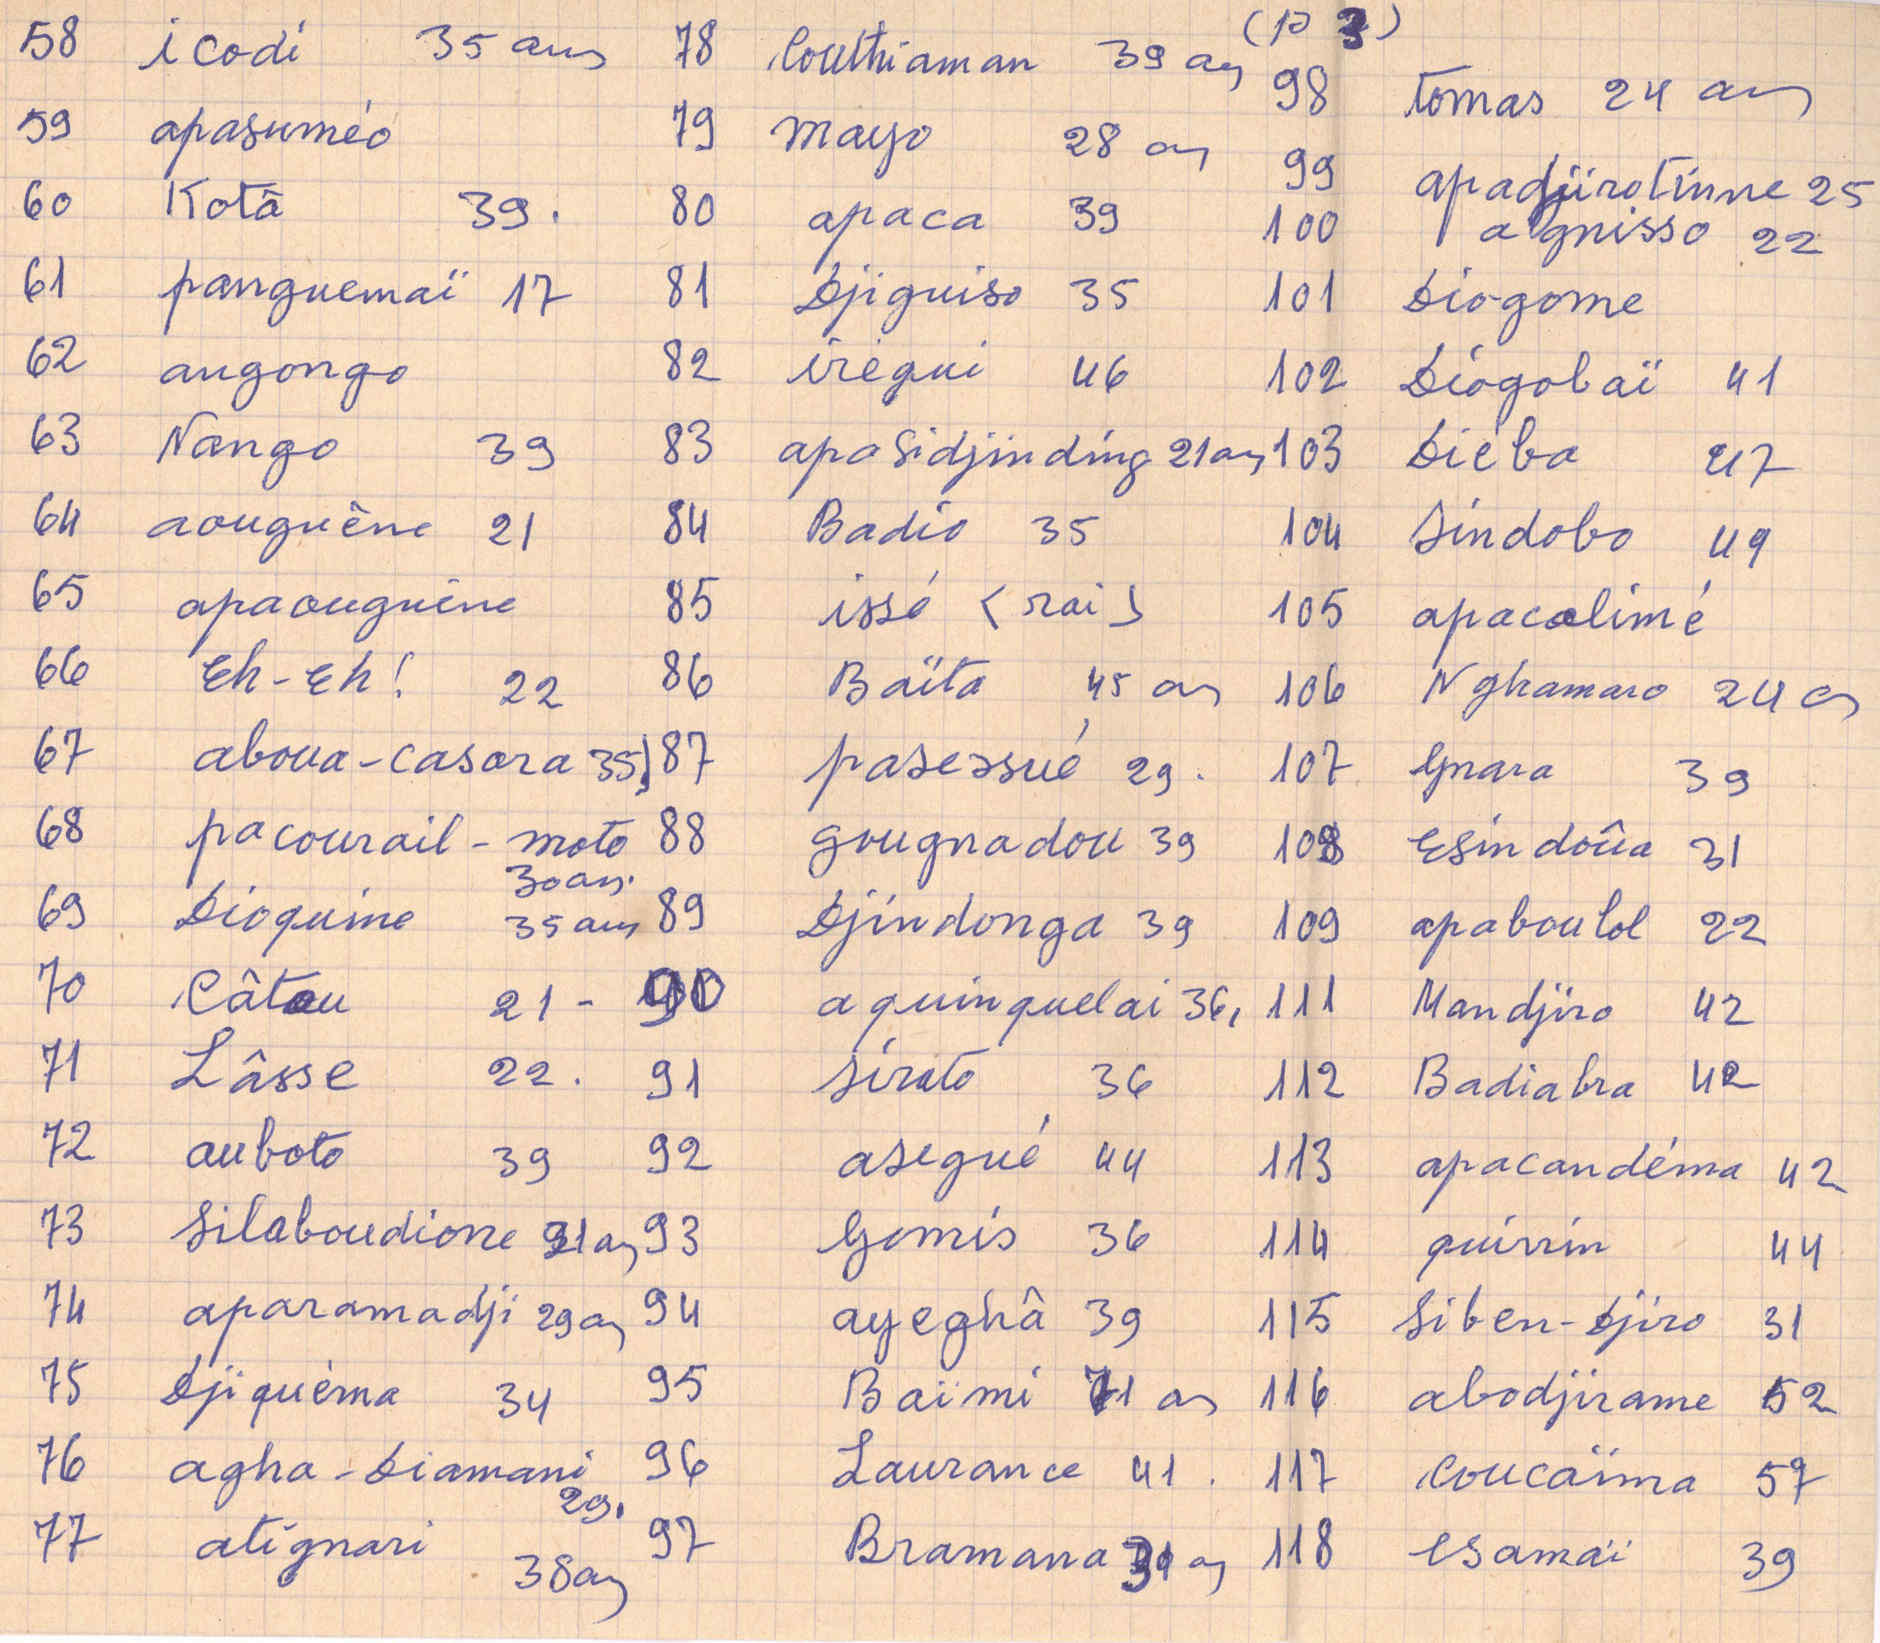 (p 3)
58 icodi 35 ans
59 apasuméo
60 Kotâ 39.
61 panguemaï 17
62 augongo
63 Nango 39
64 aouguène 21
65 apaouguène
66 Eh-Eh! 22
67 aboua-casara 35
68 pacourail-moto
30 ans.
69 Dioquine 35 ans
70 Câtou 21 -
71 Lâsse 22.
72 auboto 39
73 Silaboudione 21 ans
74 aparamadji 29 ans
75 Djiquèma 34
76 agha-Diamani
29.
77 atignari 38 ans
78 Couthiaman 39 ans
79 mayo 28 ans
80 apaca 39
81 Djiguiso 35
82 irégui 46
83 apasidjinding 21 ans
84 Badio 35
85 issé (rai)
86 Baïta 45 ans
87 pasessué 29.
88 gougnadou 39
89 Djindonga 39
90 aquinquelai 36,
91 Sirato 36
92 asegué 44
93 Gomis 36
94 ayeghâ 39
95 Baïmi 71 ans
96 Laurance 41.
97 Bramana ans
98 Tomas 24 ans
99 apadjirotinne 25
100 agnisso 22
101 Diogome
102 Diogobaï 41
103 Dièba 47
104 Sindobo 49
105 apacalimé
106 Nghamaro 24 ans
107 Gnara 39
108 Esindoûa 31
109 apaboulol 22
111 Mandjiro 42
112 Badiabra 42
113 apacandéma 42
114 quirrin 44
115 Siben-Djiro 31
116 abodjirame 52
117 Coucaïma 57
118 esamaï 39